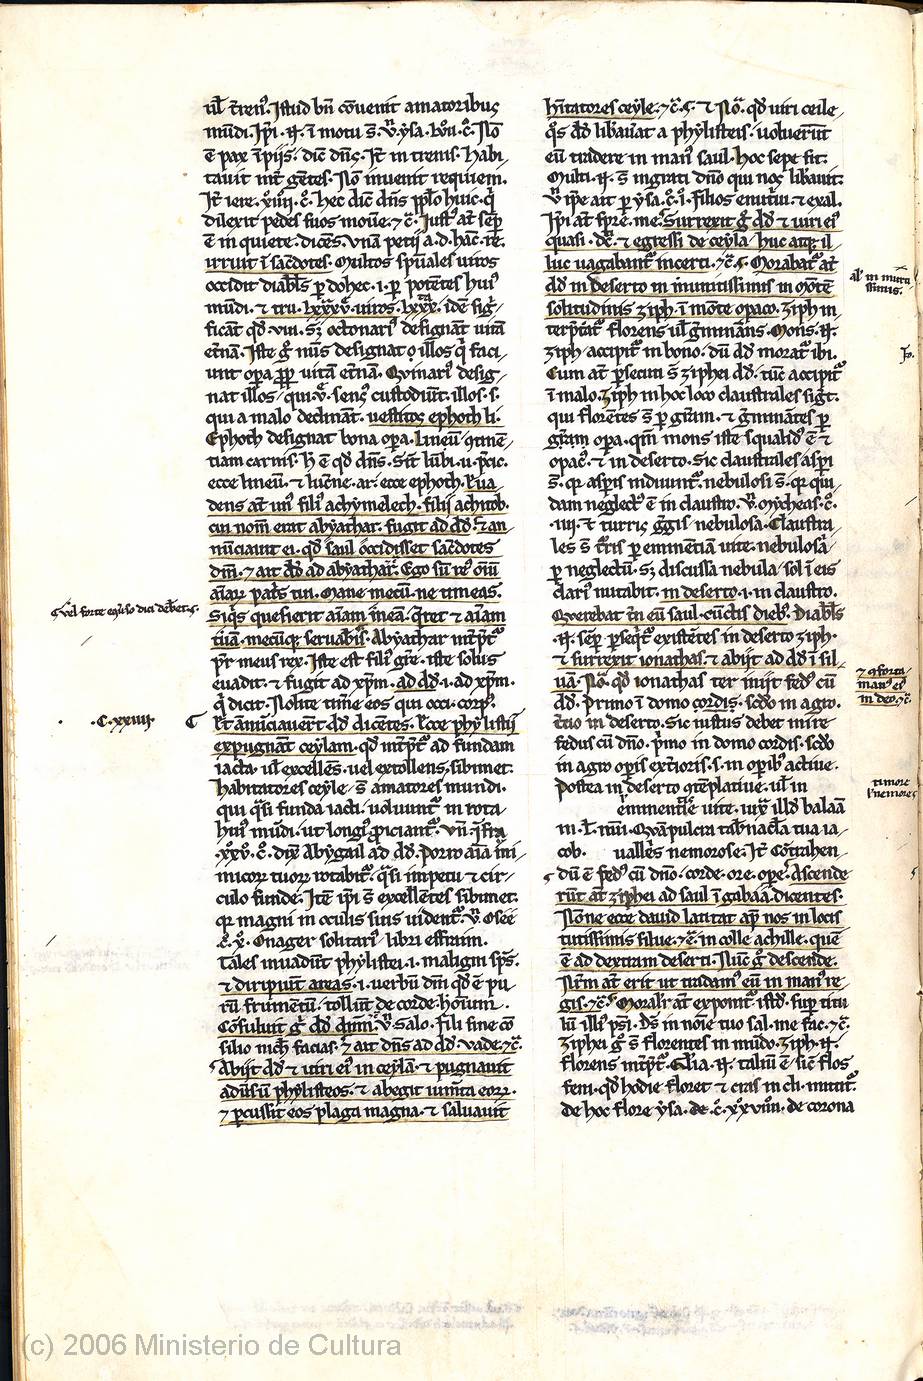 ul̄ t̄renꝰ. Istud bn̄ cōuenit amatoribus
mūdi. Ip̄i .n. ī motu s̄. vn̄ ysa. lvii. c̄. Nō
ē pax īpijs. dic̄ dn̄s. It̄ in trenis. Habi-
tauit int̄ gētes. Nō inuenit requiem.
It̄ iere. xiiii. c̄. hec dic̄ dn̄s pp̄lo huic. q̄
dilexit pedes suos mou̅e. ⁊c̄. Justꝰ at̄ semp̄
ē in quiete. dicēs. Vnā petii a. d. hāc. re.
irruit ī sac̄dotes. Multos sp̄uales uiros
occidit diabl̄s p̲ dohec .i. p̲ potētes huiꝰ
mūdi. ⁊ tru. lxxxv. uiros. lxxx. idē sig̅-
ficāt qd̄ viii. s; octonariꝰ designat uitā
et̄nā. Iste g̊ nūs designat oēs illos q̄ faci-
unt oꝑa ꝓp̄ uitā et̄nā. Qvinariꝰ desig-
nat illos qui .v. sensꝰ custodiūt. illos .s.
qui a malo declināt. uestitos ephoth li.
Ephoth designat bona oꝑa. Lineū ɔtinē-
tiam carnis. H̄ ē qd̄ dn̄s. Sīt lūbi .u. p̄cic.
ecce lineū. ⁊ luc̄ne. ar. ecce ephoth. Eua
dens at̄ unꝰ filiꝰ achymelech. filij achitob.
cui nom̄ erat abyathar. fugit ad dd̄. ⁊ an-
nūciauit ei. qd̄ saul occidisset sac̄dotes
dn̄i. ⁊ ait dd̄ ad abyathar. Ego sū reꝰ oīū
aīar̄ pat̄s tui. Mane mecū. ne timeas.
Siq̄s quesierit aīam meā. q̄ret ⁊ aīam
tuā. mecūq; seruab̄is. Abyathar int̄p̄tat̄
pr̄ meus rex. Iste est filiꝰ gr̄e. iste solus
euadit. ⁊ fugit ad xp̄m. ad dd̄ .i. ad xp̄m.
q̄ dicit. Nolite tim̄e eos qui occi. corpꝰ.
Et āniciauer̄t dd̄ dicētes. Ecce phylistij
expugnāt ceylam. qd̄ int̄p̄tat̄ ad fundam
iacta. ul̄ excellēs. uel extollens sibimet.
Habitatores ceyle s̄ amatores mundi.
qui q̄si funda iacti. uoluuntꝰ in rota
huiꝰ mūdi. ut longiꝰ ꝓiciantꝰ. Vn̄ īfra
xxv. c̄. dix̄ Abygail ad dd̄. Porro aīa īni-
micorꝝ tuorꝝ rotabitꝰ. q̄si impetu ⁊ cir-
culo funde. Itē ip̄i s̄ excellētes sibimet.
qꝛ magni in oculis suis uidentꝰ. vn̄ Osee
c̄. v. Onager solitariꝰ sibi effraim.
Tales inuadūt phylistei .i. maligni sp̄s.
⁊ diripiūt areas .i. uerbū dn̄i qd̄ ē pu
rū frumētū. tollūt de corde hoīum.
Cōsuluit g̊ dd̄ dn̄m. vn̄ Salo. Fili sine cō
silio nich̄ facias. ⁊ ait dn̄s ad dd̄. Vade. ⁊c̄.
Abijt dd̄ ⁊ uiri eiꝰ in ceylā. ⁊ pugnauit
adūsū phylisteos. ⁊ abegit iumīta eorꝝ.
⁊ ꝑcussit eos plaga magna. ⁊ saluauit
ɕ vel forte eq̄uso dici deb̄et. ɕ.
.C. xxiii.
hīitatores ceyle. ⁊c̄. ɕ. ⁊ Nō. qd̄ uiri ceile
q̊s dd̄ lib̄auat a phylisteis. uoluerūt
eū tradere in manꝰ saul. hoc sepe fit.
Multi .n. s̄ ingrati dn̄o qui nos lib̄auit.
vn̄ ip̄e ait p̲ ysa. c̄. i. Filios enutriui. ⁊ exal.
Ip̄i at̄ spre. me. Surrexit g̊ dd̄ ⁊ uiri eiꝰ
quasi .dc̄. ⁊ egressi de ceyla. huc atq; il
luc uagabantꝰ incerti. ⁊c̄. ɕ. Morabatꝰ at̄
dd̄ in deserto in īmunitissimis in mōte
solitudinis ziph ī mōte opaco. Ziph in-
terp̄tatꝰ florens ul̄ g̅minās. Mons .n.
ziph accipitꝰ in bono. dū dd̄ moratꝰ ibi.
Cum at̄ ꝑsecuti s̄ ziphei dd̄. tūc accipitꝰ
ī malo. Ziph in hoc loco claustrales sig̅t.
qui florētes s̄ p̲ gr̄am. ⁊ g̅minātes p̲
gr̄am oꝑa. qm̄ mons iste squalidꝰ ē ⁊
opacꝰ. ⁊ in deserto. Sic claustrales aspi
s̄. qꝛ aspis induūtꝰ. nebulosi s̄. qꝛ qui-
dam neglectꝰ ē in claustro. vn̄ Mycheas. c̄.
.iiii. ⁊ turris g̅gis nebulosa. Claustra-
les s̄ t̄ris p̲ eminētiam uite. nebulosa
p̲ neglectū. s; discussa nebula sol ī eis
clariꝰ rutabit. in deserto .i. in claustro.
Querebat tn̄ eū saul. cūctis diebꝰ. Diabl̄s
.n. semp̄ ꝑseq̄tꝰ existētes in deserto ziph.
⁊ surrexit ionathas. ⁊ abijt ad dd̄ ī sil-
uā. Nō. qd̄ ionathas ter inijt fedꝰ cū
dd̄. Primo ī domo cordis. scd̄o in agro.
t̄cio in deserto. Sic iustus debet inire
fedus cū dn̄o. p̄mo in domo cordis. scd̄o
in agro oꝑis ext̄ioris .s. in oꝑibꝰ actiue.
Postea in deserto ɔtēplatiue. ul̄ in
eminentīe uite. iux̄ illd̄ balaā
in .l. nūi. Qvā pulcra tab̄nacl̄a tua ia-
cob. ualles nemorose. It̄ Cōtrahen-
dū ē fedꝰ cū dn̄o. corde. ore. oꝑe. Ascende
rūt at̄ ziphei ad saul ī gabaā. dicentes.
Nōne ecce dauid latitat apꝰ nos in locis
tutissimis silue. ⁊c̄. in colle achille. que
ē ad dextram deserti. Nūc g̊ descende.
Nr̄m at̄ erit ut tradamꝰ eū in manꝰ re
gis. ⁊c̄. ɕ Moralit̄ at̄ exponitꝰ istd̄. sup̲ titu
lū illiꝰ ps̄i. Ds̄ in noīe tuo sal. me fac. ⁊c̄.
Ziphei g̊ s̄ florentes in mūdo. Ziph .n.
florens int̄p̄tatꝰ. Glia .n. taliū ē sic̄ flos
feni. qd̄ hodie floret ⁊ cras in cli. mittitꝰ.
de hoc flore ysa. c̄. xxviii. de corona
al̄ in muni
tissimis.
⁊ ɔforta-
manꝰ eiꝰ
in deo. ⁊c̄.
timore
l' nemore
(c) 2006 Ministerio de Cultura